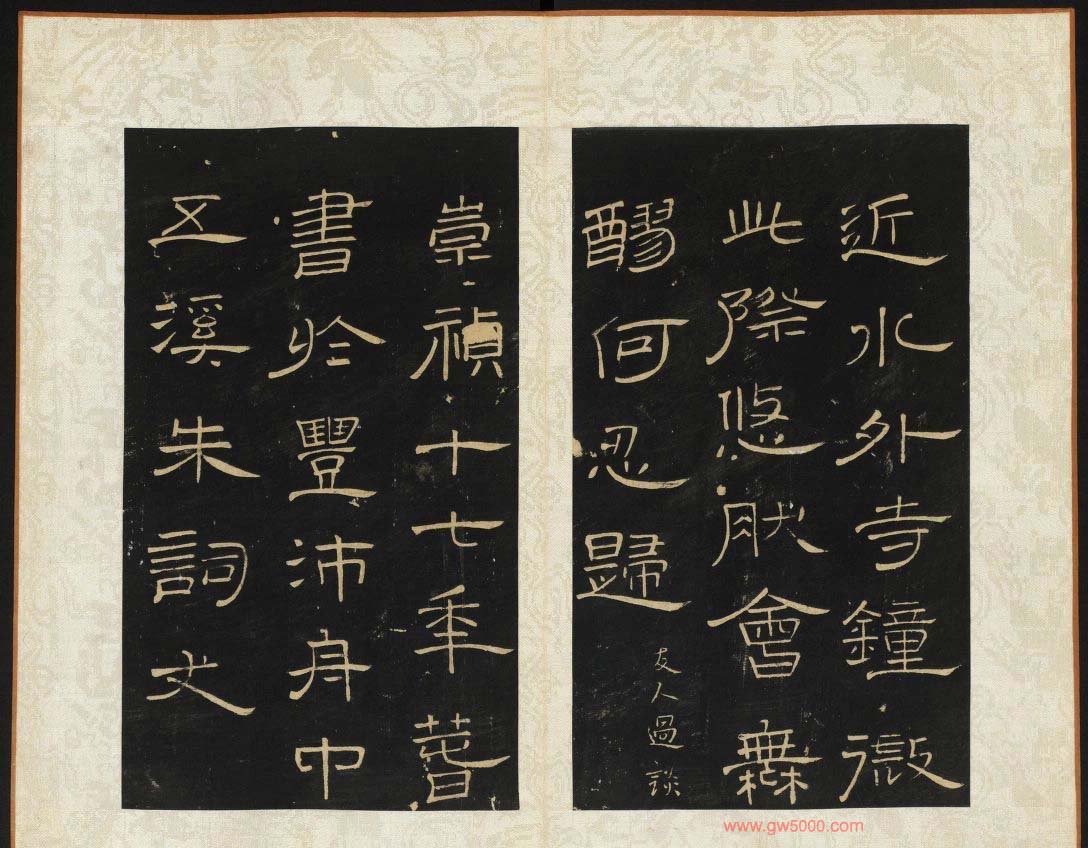 近水外寺鐘微
此際悠肰會橆
醪何忍歸
友人過談
崇禎十七年萅
書於豐沛舟中
五溪朱詞丈
www.gw5000.com